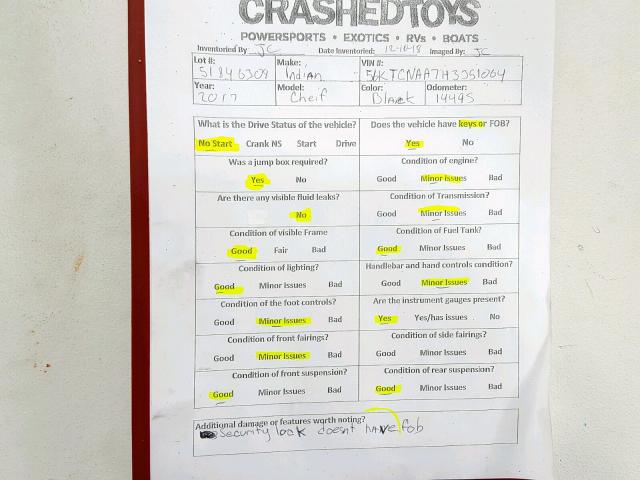 CRASHEDTOYS
POWERSPORTS • EXOTICS • RVs • BOATS
Inventoried By JC Date Inventoried: 12-11-18 Imaged By: JC
Lot #: 51846309 Make: Indian VIN #: 56KTCNAA7H3351064
Year: 2017 Model: Cheif Color: Black Odometer: 14445
What is the Drive Status of the vehicle? Does the vehicle have keys or FOB?
No Start Crank NS Start Drive Yes No
Was a jump box required? Condition of engine?
Yes No Good Minor Issues Bad
Are there any visible fluid leaks? Condition of Transmission?
No Good Minor Issues Bad
Condition of visible Frame Condition of Fuel Tank?
Good Fair Bad Good Minor Issues Bad
Condition of lighting? Handlebar and hand controls condition?
Good Minor Issues Bad Good Minor Issues Bad
Condition of the foot controls? Are the instrument gauges present?
Good Minor Issues Bad Yes Yes/has issues No
Condition of front fairings? Condition of side fairings?
Good Minor Issues Bad Good Minor Issues Bad
Condition of front suspension? Condition of rear suspension?
Good Minor Issues Bad Good Minor Issues Bad
Additional damage or features worth noting?
Security lock doesnt have fob